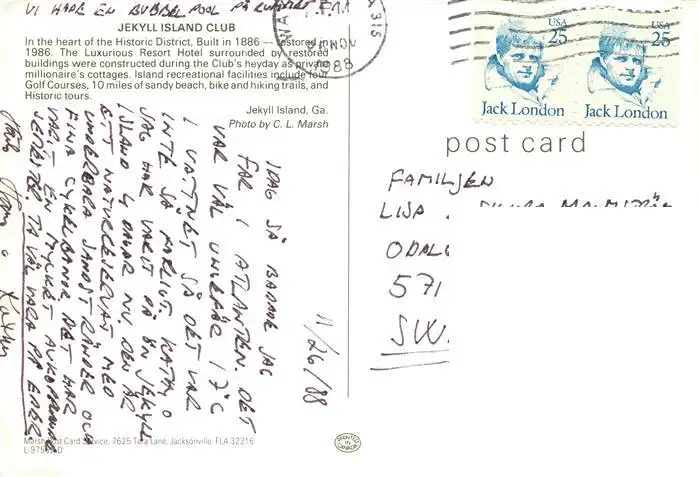 VI HADE EN BUBBEL POOL PÅ RUMMET
JEKYLL ISLAND CLUB
In the heart of the Historic District, Built in 1886 — restored in
1986. The Luxurious Resort Hotel surrounded by restored
buildings were constructed during the Club's heyday as private
millionaire's cottages. Island recreational facilities include four
Golf Courses, 10 miles of sandy beach, bike and hiking trails, and
Historic tours.
Jekyll Island, Ga.
Photo by C. L. Marsh
315
NOV
1988
USA
25
Jack London
USA
25
Jack London
post card
11/26/88
IDAG SÅ BADADE JAG
FAR I ATLANTEN. DET
VAR VÄL UNGEFÄR 17°C
I VATTNET SÅ DET VAR
INTE SÅ FARLIGT. KATHY O
JAG HAR VARIT PÅ ÖN JEKYLL
ISLAND 4 DAGAR NU. DEN ÄR
ETT NATURRESERVAT MED
UNDERBARA SANDSTRÄNDER OCH
FINA CYKELBANOR. DET HAR
VARIT EN MYCKET AVKOPPLANDE
TA VÄL VARA PÅ ER
Kathy
FAMILJEN
LISA
ODAL
571
SW
Marsh Post Card Service, 7625 Tara Lane, Jacksonville, FLA 32216
PRINTED IN CANADA